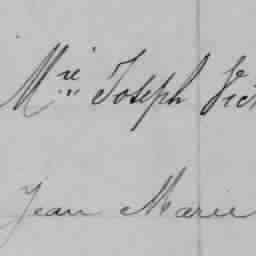 Mre Joseph Vict
Jean Marie